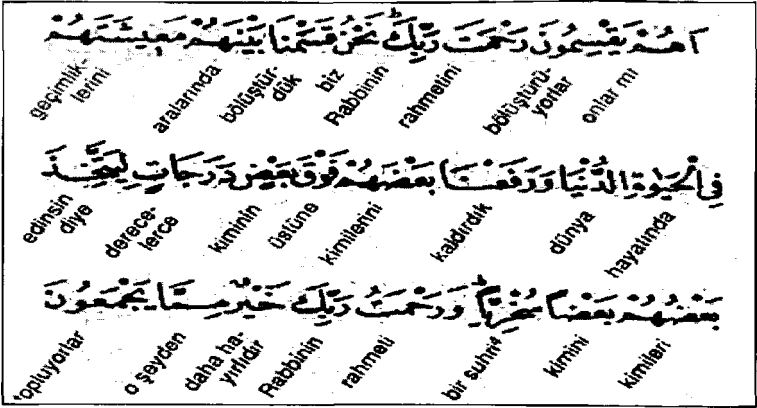 اَهُمْ يَقْسِمُونَ رَحْمَتَ رَبِّكَۜ نَحْنُ قَسَمْنَا بَيْنَهُمْ مَعِيشَتَهُمْ
onlar mı bölüştürü-yorlar rahmetini Rabbinin biz bölüştür-dük aralarında geçimlik-lerini
فِي الْحَيٰوةِ الدُّنْيَا وَرَفَعْنَا بَعْضَهُمْ فَوْقَ بَعْضٍ دَرَجَاتٍ لِيَتَّخِذَ
hayatında dünya kaldırdık kimilerini üstüne kiminin derece-lerce edinsin diye
بَعْضُهُمْ بَعْضًا سُخْرِيًّاۜ وَرَحْمَتُ رَبِّكَ خَيْرٌ مِمَّا يَجْمَعُونَ
kimileri kimini bir suhri⁴ rahmeti Rabbinin daha ha-yırlıdır o şeyden topluyorlar